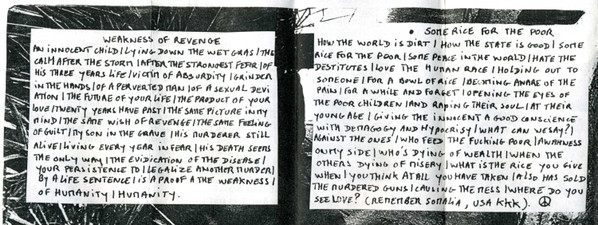 WEAKNESS OF REVENGE
AN INNOCENT CHILD / LYING DOWN THE WET GRAS / THE
CALM AFTER THE STORM / AFTER THE STRONGEST FEAR / OF
HIS THREE YEARS LIFE / VICTIM OF ABSURDITY / GRINDER
IN THE HANDS / OF A PERVERTED MAN / OF A SEXUAL DEVI
ATION / THE FUTURE OF YOUR LIFE / THE PRODUCT OF YOUR
LOVE / TWENTY YEARS HAVE PAST / THE SAME PICTURE IN MY
MIND / THE SAME WISH OF REVENGE / THE SAME FEELING
OF GUILT / MY SON IN THE GRAVE / HIS MURDERER STILL
ALIVE / LIVING EVERY YEAR IN FEAR / HIS DEATH SEEMS
THE ONLY WAY / THE EVIDICATION OF THE DISEASE /
YOUR PERSISTENCE TO / LEGALIZE ANOTHER MURDER /
BY A LIFE SENTENCE / IS A PROOF A THE WEAKNESS /
OF HUMANITY / HUMANITY.
• SOME RICE FOR THE POOR
HOW THE WORLD IS DIRT / HOW THE STATE IS GOOD / SOME
RICE FOR THE POOR / SOME PEACE IN THE WORLD / HATE THE
DESTITUTES / LOVE THE HUMAN RACE / HOLDING OUT TO
SOMEONE / FOR A BOWL OF RICE / BEING AWARE OF THE
PAIN / FOR A WHILE AND FORGET / OPENING THE EYES OF
THE POOR CHILDREN / AND RAPING THEIR SOUL / AT THEIR
YOUNG AGE / GIVING THE INNOCENT A GOOD CONSCIENCE
WITH DEMAGOGY AND HYPOCRISY / WHAT CAN WE SAY? /
AGAINST THE ONES / WHO FEED THE FUCKING POOR / AWARNESS
ON MY SIDE / WHO'S DYING OF WEALTH / WHEN THE
OTHERS DYING OF MISERY / WHAT IS THE RICE YOU GIVE
WHEN / YOU THINK AT ALL YOU HAVE TAKEN / ALSO HAS SOLD
THE MURDERED GUNS / CAULING THE MESS / WHERE DO YOU
SEE LOVE? (REMEMBER SOMALIA, USA KKK).